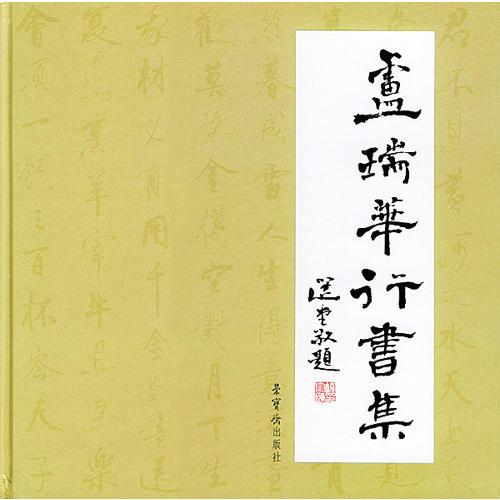 盧瑞華行書集
選堂敬題
榮寶齋出版社
君不見黃河之水天上
暮成雪人生得意
歡莫使金樽空對月天生
我材必有用千金散盡還
復來烹羊宰牛且為樂
會須一飲三百杯岑夫子